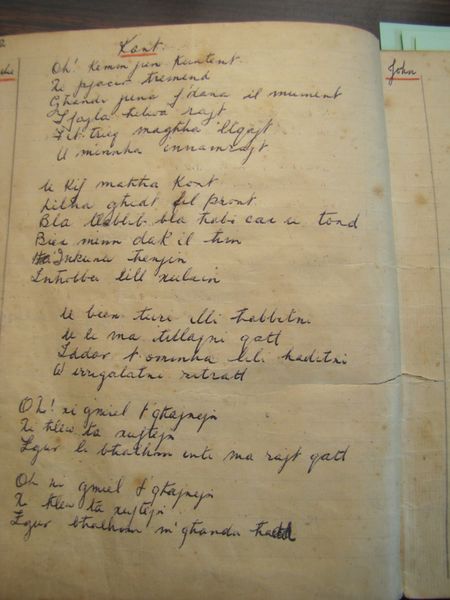 Kant.
Oh! Kemm jien kuntent
Xi pjacir tremend
Għandi jena f'dana il mument
I tfajla helwa rajt
Fit trieq magħha ltqajt
U minnha innamrajt
U kif maħha kont
Lilha għedt fil pront
Bla tlablib bla
Biex minn dak il
Inkunu henjin
Inħobbu lill xulxin
U biex turi illi ħabbitni
U li ma titlaqni qatt
Iddar t'ommha lili ħaditni
W irrigalatni ritratt
Oh! xi gmiel t'għajnejn
Xi ħlew ta xuftejn
Żgur li bħalhom inti ma rajt qatt
Oh xi gmiel t'għajnejn
Xi ħlew ta xuftejn
Żgur bħalhom m'għanda ħadd
John